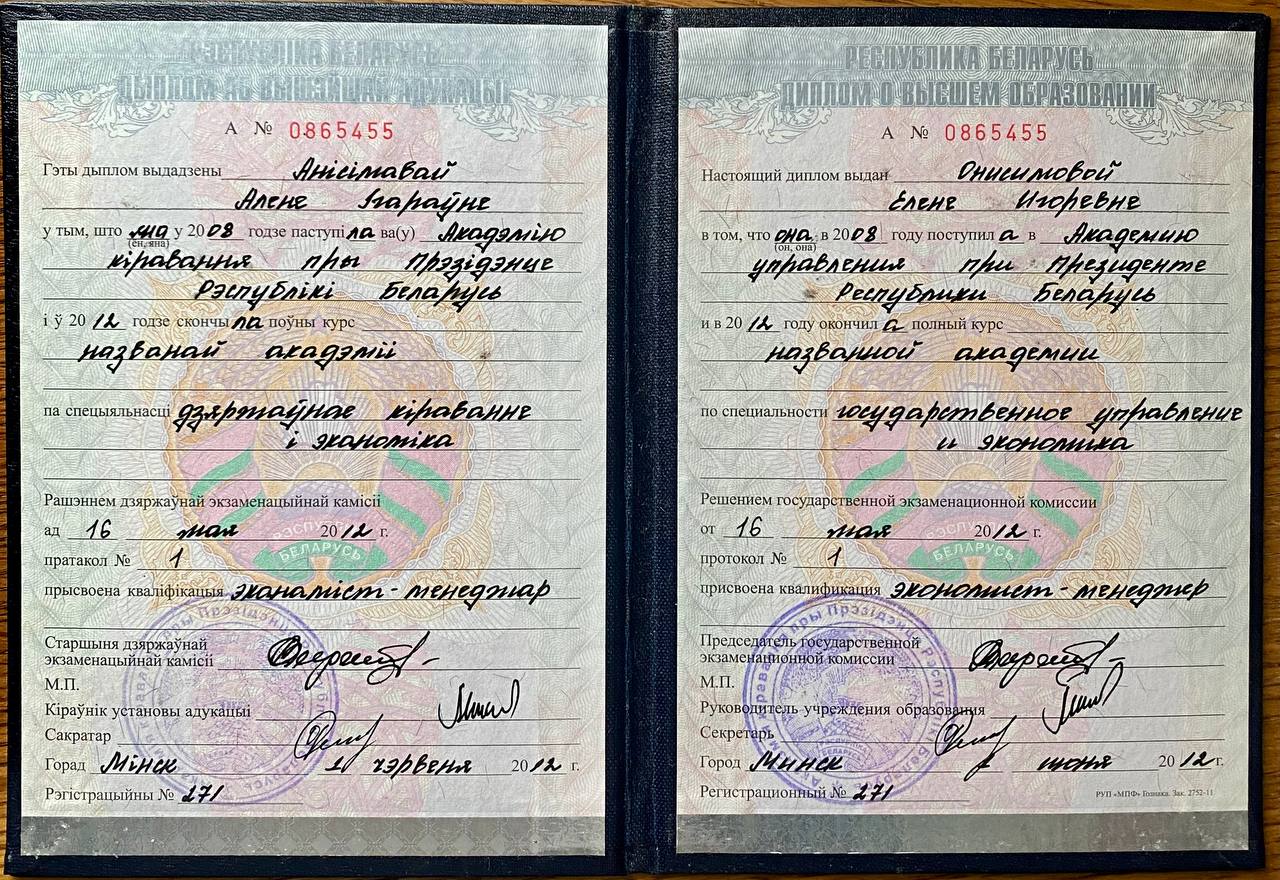 РЭСПУБЛІКА БЕЛАРУСЬ
ДЫПЛОМ АБ ВЫШЭЙШАЙ АДУКАЦЫІ
А № 0865455
Гэты дыплом выдадзены Анісімавай
Алене Ігараўне
у тым, што яна у 2008 годзе паступіла ва(у) Акадэмію
(ён, яна)
кіравання пры Прэзідэнце
Рэспублікі Беларусь
і ў 2012 годзе скончыла поўны курс
названай акадэміі
па спецыяльнасці дзяржаўнае кіраванне
і эканоміка
Рашэннем дзяржаўнай экзаменацыйнай камісіі
ад 16 мая 2012 г.
пратакол № 1
прысвоена кваліфікацыя эканаміст-менеджар
Старшыня дзяржаўнай
экзаменацыйнай камісіі
М.П.
Кіраўнік установы адукацыі
Сакратар
Горад Мінск 1 чэрвеня 2012 г.
Рэгістрацыйны № 271
РЭСПУБЛІКА
БЕЛАРУСЬ
РЕСПУБЛИКА БЕЛАРУСЬ
ДИПЛОМ О ВЫСШЕМ ОБРАЗОВАНИИ
А № 0865455
Настоящий диплом выдан Онисимовой
Елене Игоревне
в том, что она в 2008 году поступила в Академию
(он, она)
управления при Президенте
Республики Беларусь
и в 2012 году окончила полный курс
названной академии
по специальности государственное управление
и экономика
Решением государственной экзаменационной комиссии
от 16 мая 2012 г.
протокол № 1
присвоена квалификация экономист-менеджер
Председатель государственной
экзаменационной комиссии
М.П.
Руководитель учреждения образования
Секретарь
Город Минск 1 июня 2012 г.
Регистрационный № 271
РУП «МПФ» Гознака. Зак. 2752-11
РЭСПУБЛІКА
БЕЛАРУСЬ